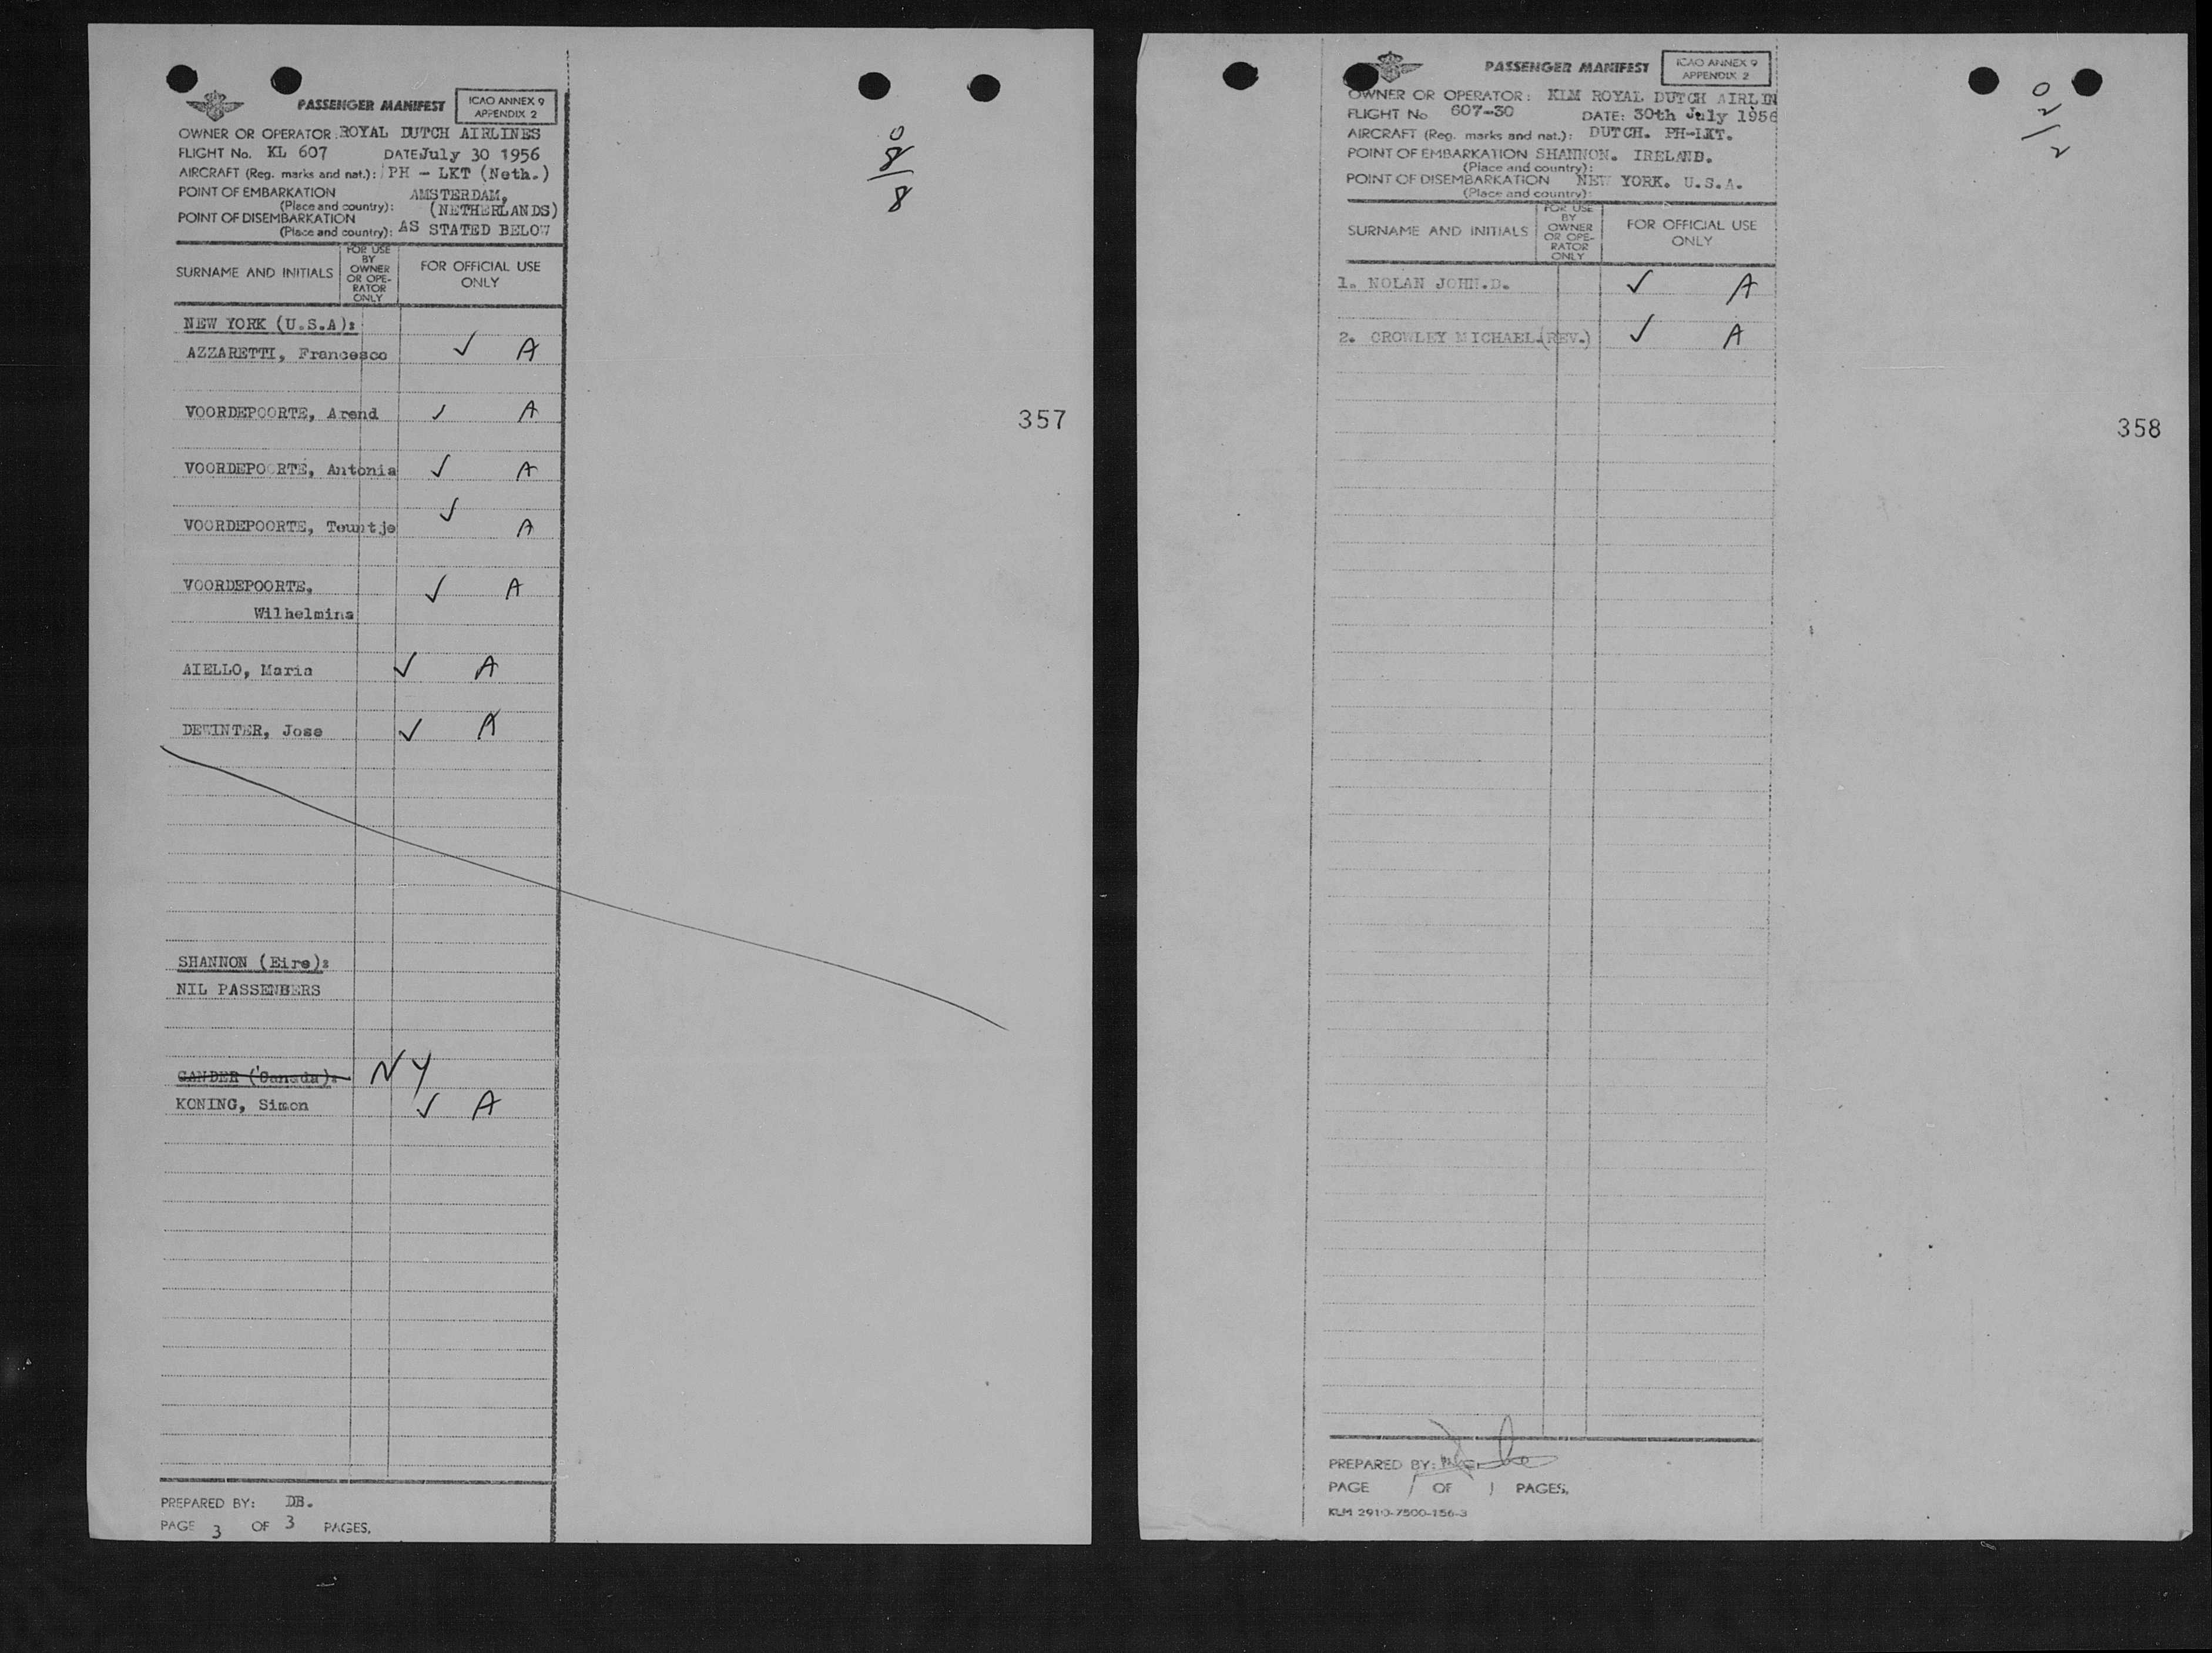 PASSENGER MANIFEST
ICAO ANNEX 9
APPENDIX 2
OWNER OR OPERATOR: ROYAL DUTCH AIRLINES
FLIGHT No. KL 607 DATE: July 30 1956
AIRCRAFT (Reg. marks and nat.): PH - LKT (Neth.)
POINT OF EMBARKATION AMSTERDAM,
(Place and country): (NETHERLANDS)
POINT OF DISEMBARKATION
(Place and country): AS STATED BELOW
SURNAME AND INITIALS
FOR USE
BY
OWNER
OR OPE-
RATOR
ONLY
FOR OFFICIAL USE
ONLY
NEW YORK (U.S.A):
AZZARETTI, Francesco ✓ A
VOORDEPOORTE, Arend ✓ A
VOORDEPOORTE, Antonia ✓ A
VOORDEPOORTE, Teuntje ✓ A
VOORDEPOORTE, ✓ A
Wilhelmina
AIELLO, Maria ✓ A
DEWINTER, Jose ✓ A
SHANNON (Eire):
NIL PASSENBERS
GANDER (Canada): NY
KONING, Simon ✓ A
PREPARED BY: DB.
PAGE 3 OF 3 PAGES.
0
8/8
357
PASSENGER MANIFEST
ICAO ANNEX 9
APPENDIX 2
OWNER OR OPERATOR: KLM ROYAL DUTCH AIRLIN
FLIGHT No 607-30 DATE: 30th July 1956
AIRCRAFT (Reg. marks and nat.): DUTCH. PH-LKT.
POINT OF EMBARKATION SHANNON. IRELAND.
(Place and country):
POINT OF DISEMBARKATION NEW YORK. U.S.A.
(Place and country):
SURNAME AND INITIALS
FOR USE
BY
OWNER
OR OPE-
RATOR
ONLY
FOR OFFICIAL USE
ONLY
1. NOLAN JOHN.D. ✓ A
2. CROWLEY MICHAEL.(REV.) ✓ A
PREPARED BY:
PAGE 1 OF 1 PAGES.
KLM 2910-7500-156-3
2/20
358